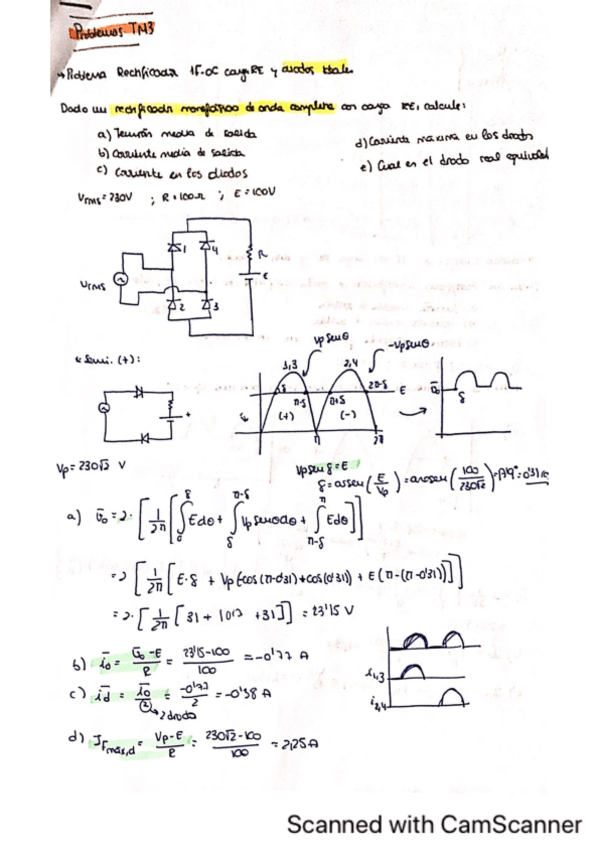 Problemas TM3
→ Problema Rectificador 1F-OC carga RE y diodos ideales
Dado un rectificador monofásico de onda completa con carga RE, calcule:
a) Tensión media de salida
b) Corriente media de salida
c) Corriente en los diodos
d) Corriente máxima en los diodos
e) Cual es el diodo real
Vrms = 230V ; R = 100Ω ; E = 100V
1 4
R
E
Vrms
2 3
* Semi. (+):
Vp senθ
-Vp senθ
1,3 2,4
δ π-δ π+δ 2π-δ E
(+) (-)
π 2π
δ
Vp = 230√2 V
Vp sen δ = E
δ = arcsen (E/Vp) = arcsen (100/230√2) =
a) v̄o = 2· [1/2π [∫0^δ E dθ + ∫δ^π-δ Vp senθ dθ + ∫π-δ^π E dθ]]
= 2 [1/2π [E·δ + Vp (-cos (π-0'31) + cos (0'31)) + E (π-(π-0'31))]]
= 2· [1/2π [31 + +31]] = 23'15 V
b) īo = (v̄o - E)/R = (23'15-100)/100 = -0'77 A
c) īd = īo/2 = -0'77/2 = -0'38 A
→ 2 diodos
i1,3
i2,4
d) IFmáx,d = (Vp-E)/R = (230√2-100)/100 = 2,25 A
Scanned with CamScanner